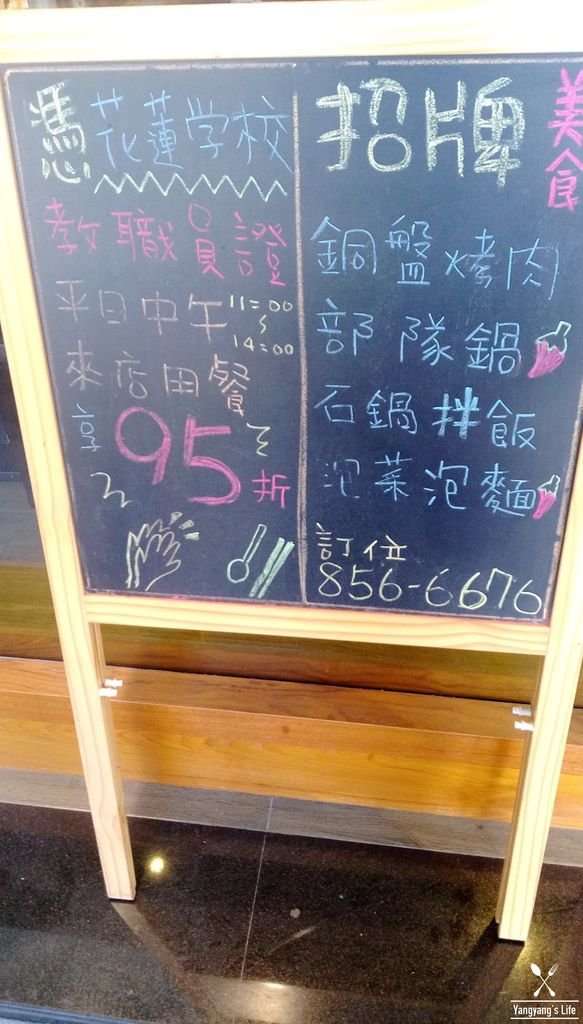 憑花蓮学校
教職員證
平日中午11:00
~
14:00
來店用餐
享95折
招牌
美食
銅盤烤肉
部隊鍋
石鍋拌飯
泡菜泡麵
訂位
856-6676
Yangyang's Life